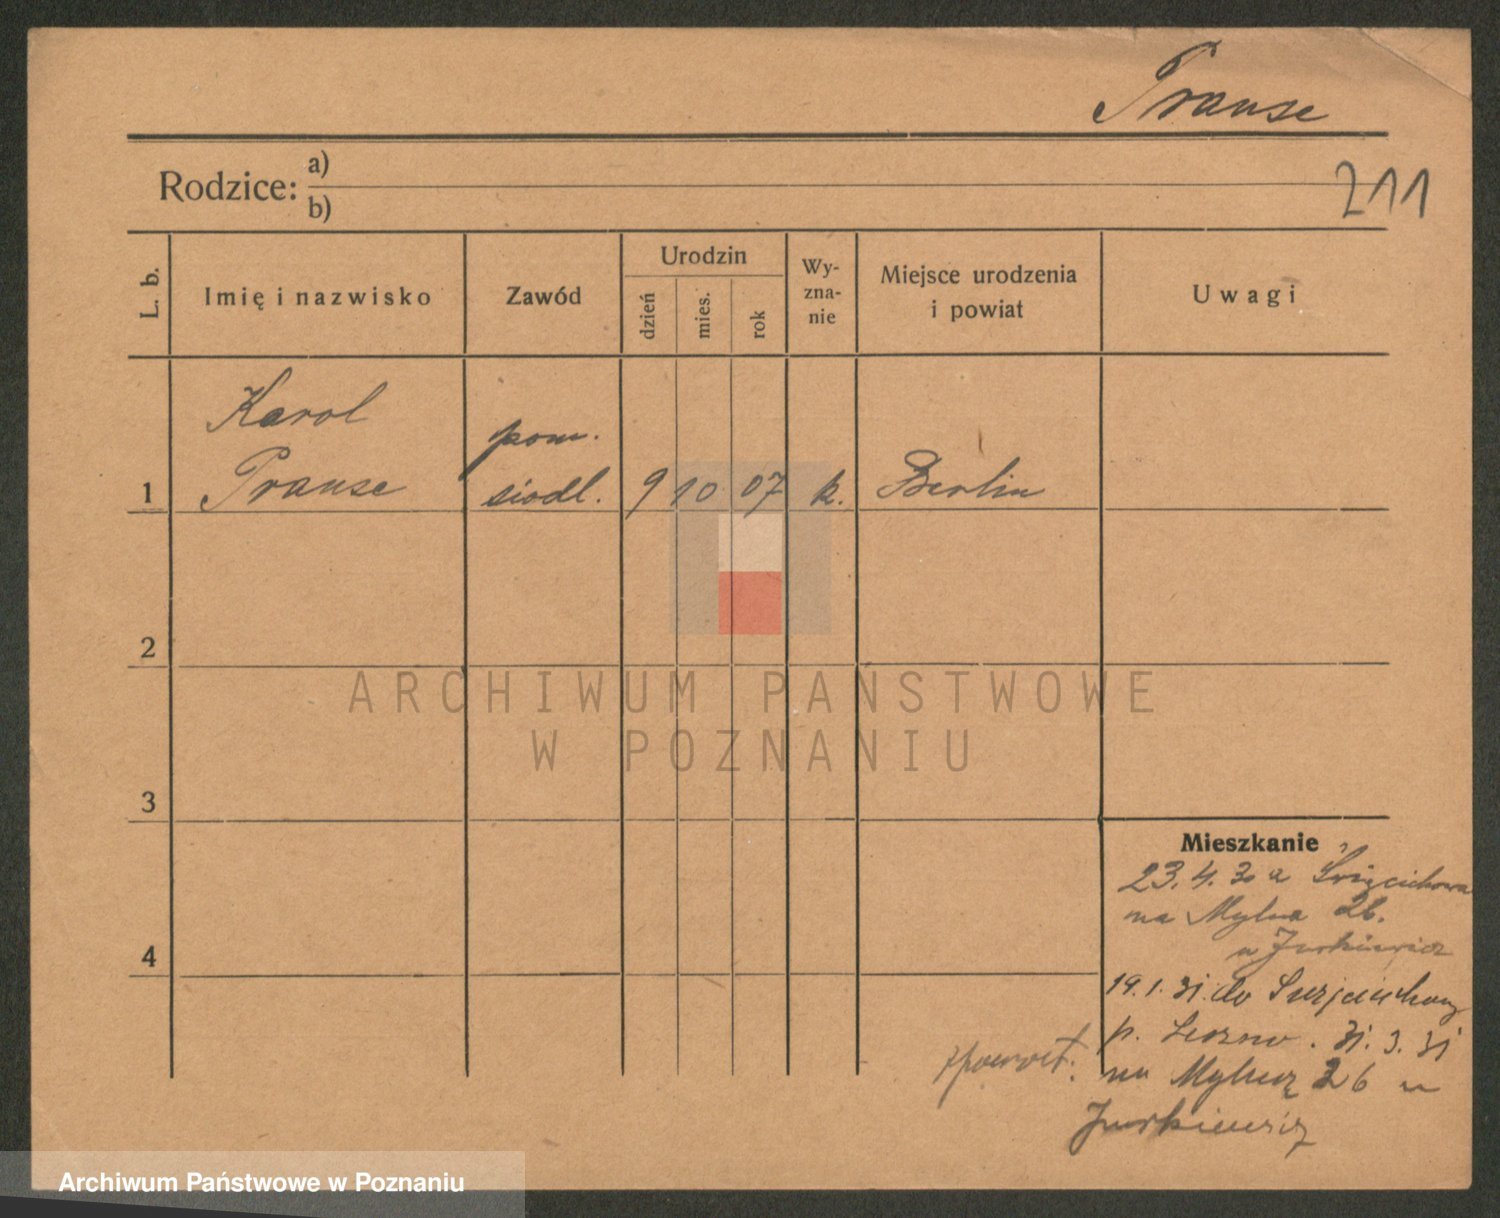 Pranse
Rodzice: a)
b)
211
L. b.
Imię i nazwisko
Zawód
Urodzin
dzień
mies.
rok
Wy-
zna-
nie
Miejsce urodzenia
i powiat
Uwagi
Karol
pom.
1 Pranse siodl. 9 10 07 k. Berlin
2
3
4
Mieszkanie
23.4.30 z Święcichowa
na Mylna 26.
u Jurkiewicz
19.1.31. do Święciechowy
p. Leszno. 31.3.31
zpowrot. na Mylną 26 u
Jurkiewicz
ARCHIWUM PAŃSTWOWE
W POZNANIU
Archiwum Państwowe w Poznaniu